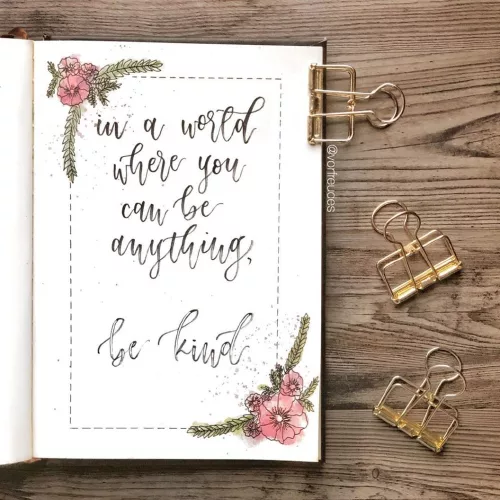 in a world
where you
can be
anything,
be kind
@vorfreudes